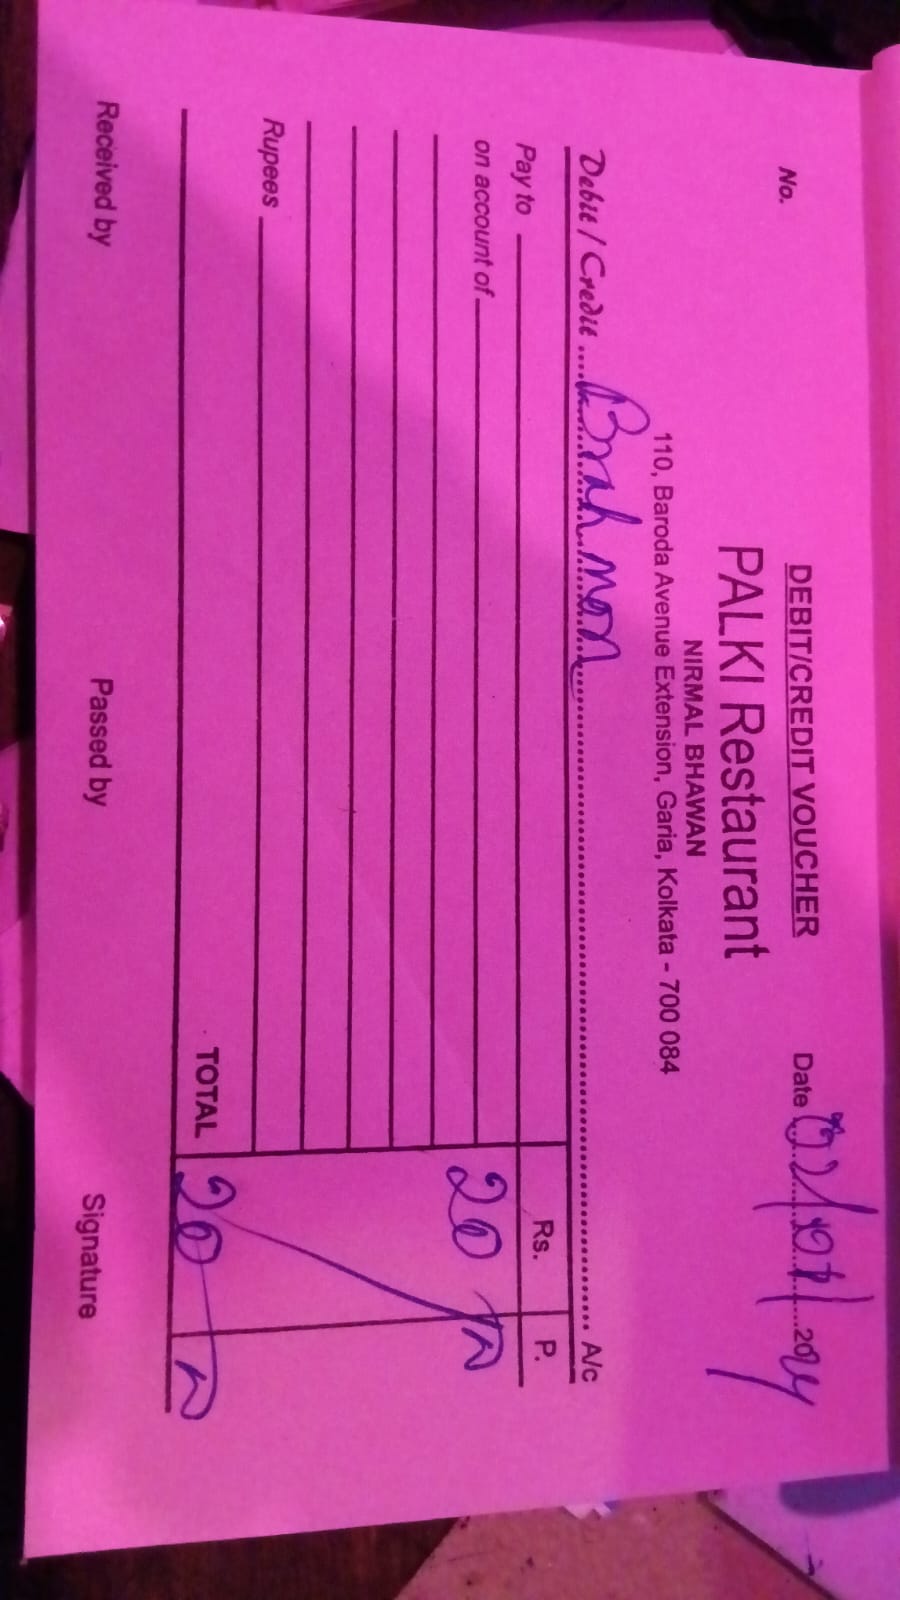 DEBIT/CREDIT VOUCHER
No. Date 02/01/2024
PALKI Restaurant
NIRMAL BHAWAN
110, Baroda Avenue Extension, Garia, Kolkata - 700 084
Debit / Credit Brahmon A/c
Pay to Rs. P.
on account of 20
Rupees
TOTAL 20
Received by Passed by Signature